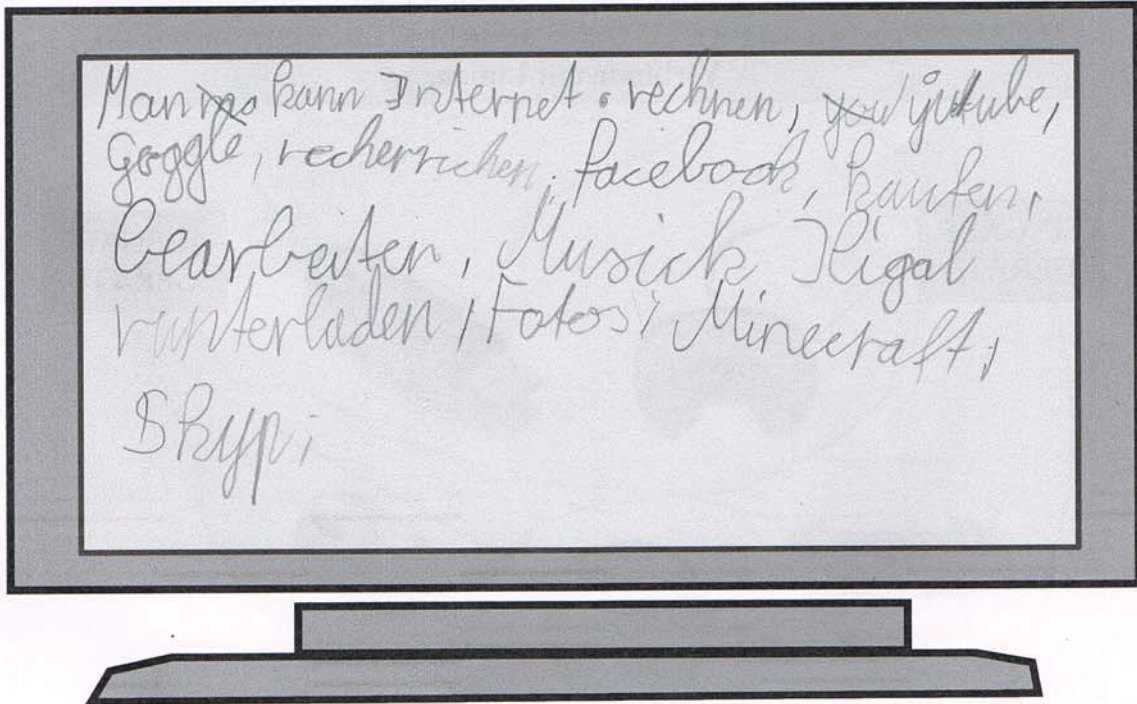 Man kann Internet. rechnen, yutube,
Goggle, recherrichen, facebook, kaufen,
bearbeiten, Musick Iligal
runterladen, Fotos, Minecraft,
Skyp,